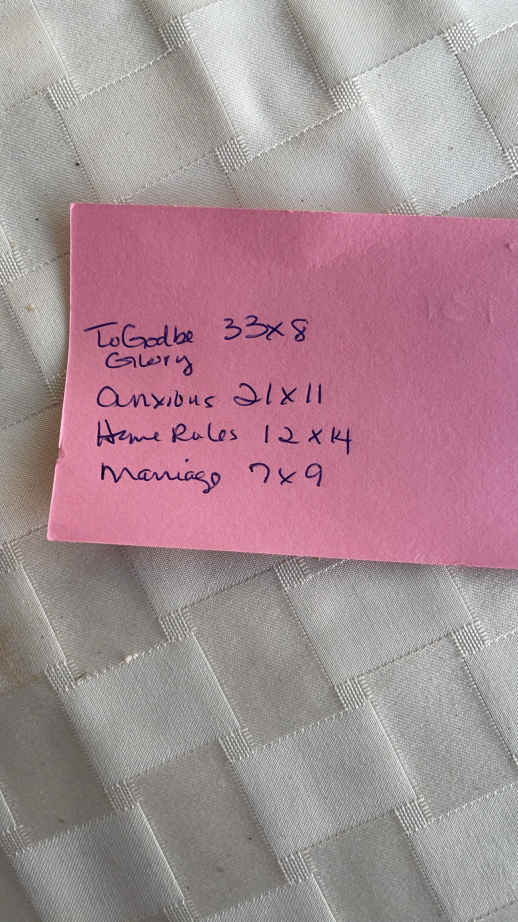 To God be 33x8
Glory
Anxious 21x11
Home Rules 12x14
Marriage 7x9